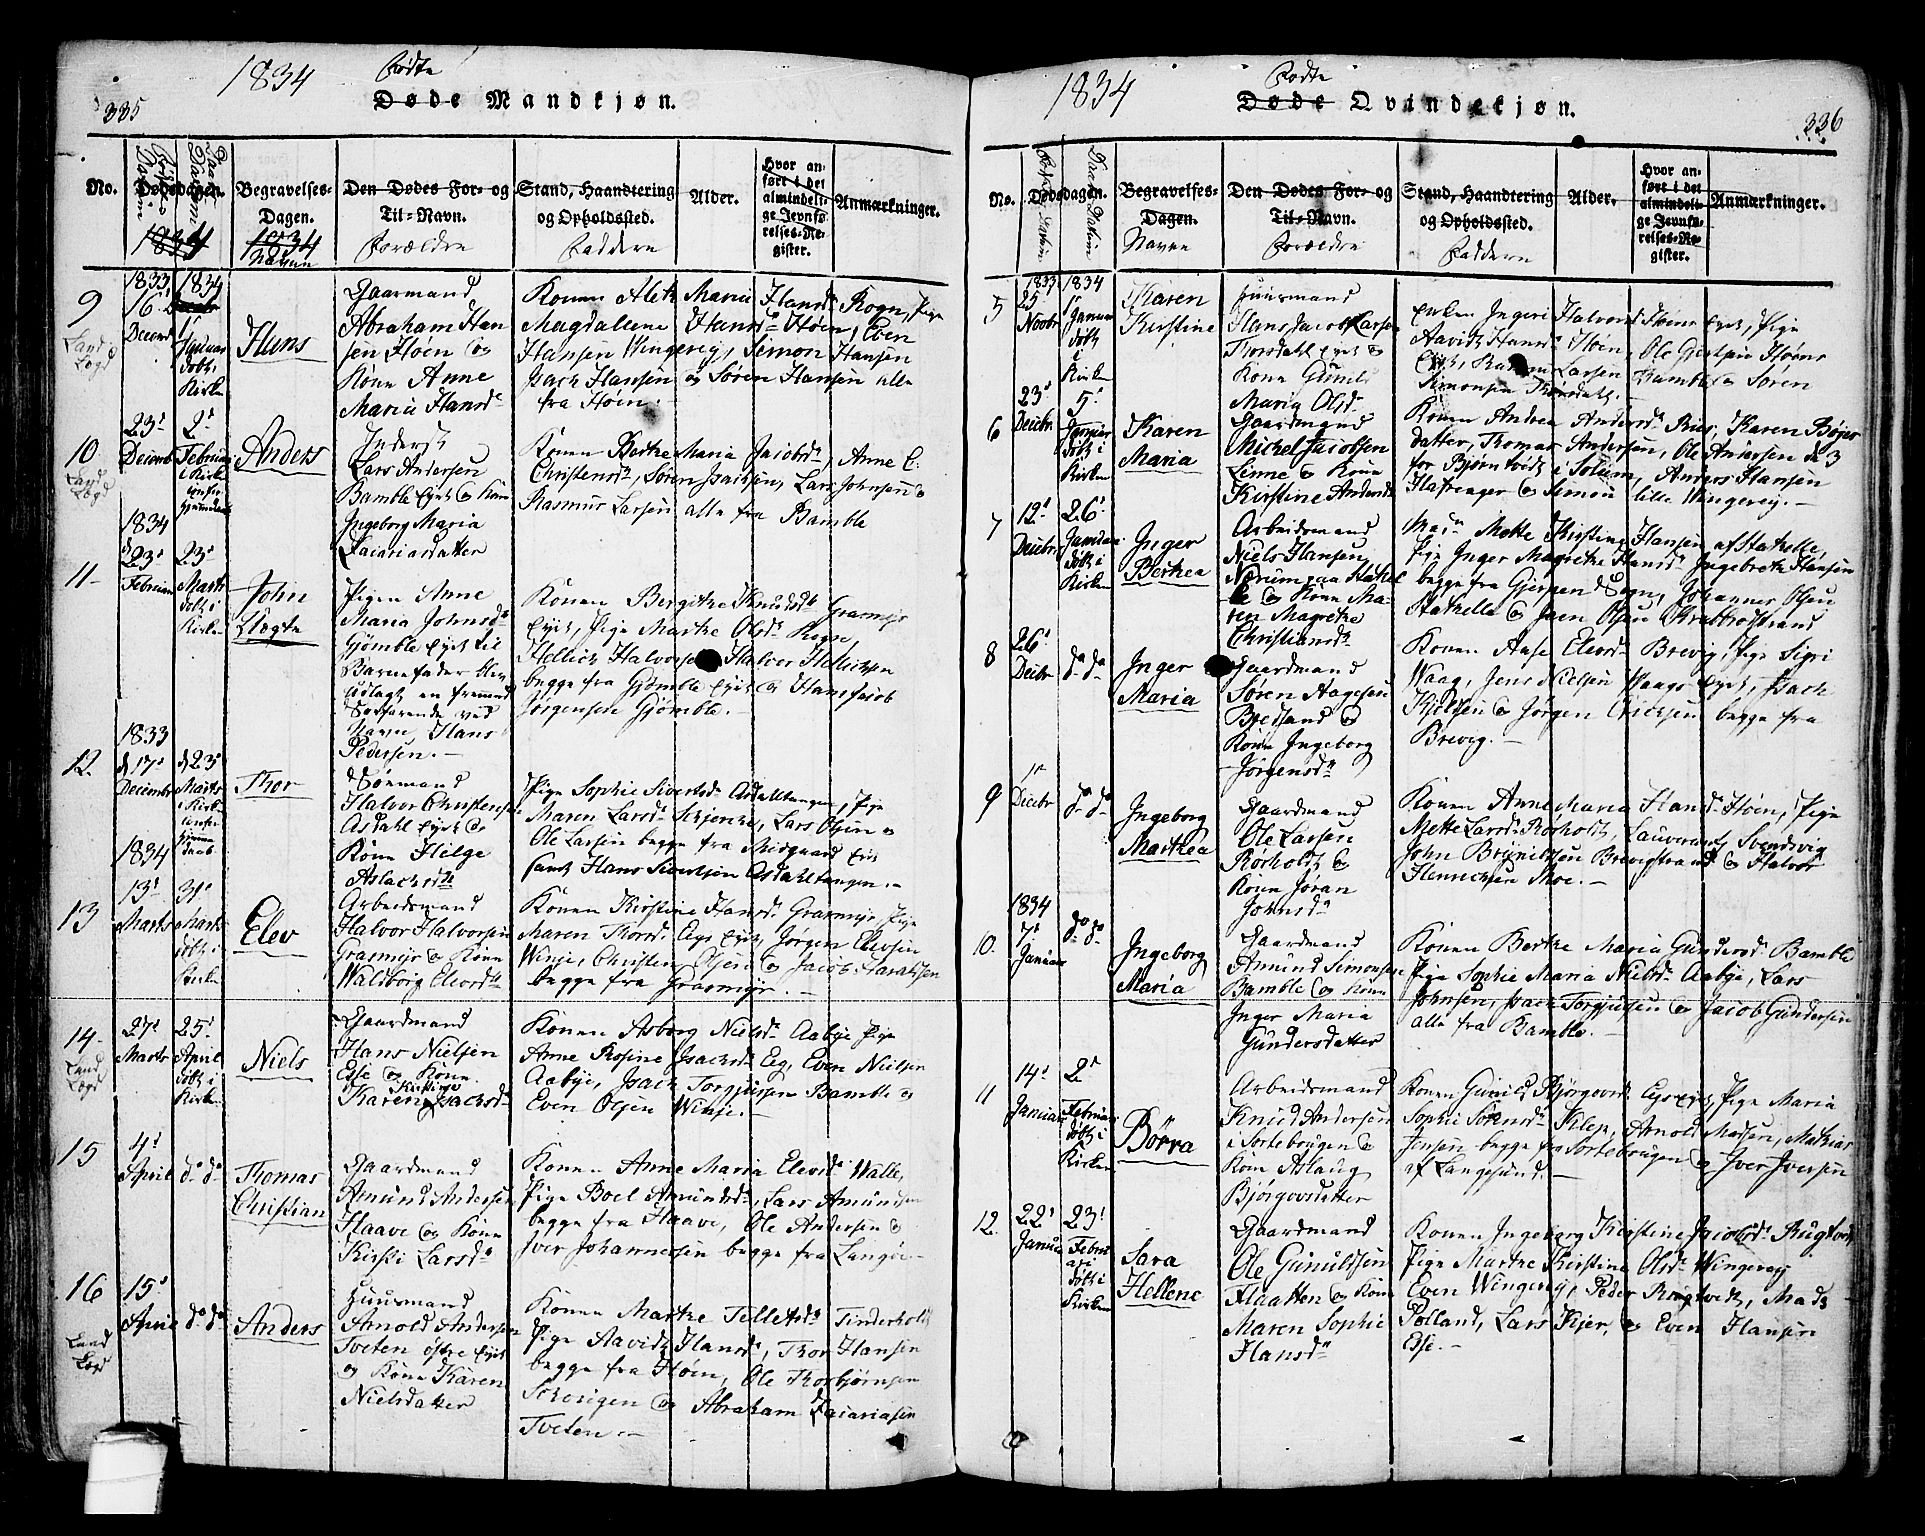 335
1834
Fødte
Døde Mandkjøn.
No.
Dødsdagen.
1834
Begravelses-
Dagen.
1834
Navne
Den Dødes For- og
Til-Navn.
Forældre
Stand, Haandtering
og Opholdssted.
Faddere
Alder.
Hvor an-
ført i det
almindeli-
ge Jevnfø-
relses-Re-
gister.
Anmærkninger.
9
1833
16
Decemb
1834
Kirken
Hans
Gaarmand
Abraham Han
sen Høen og
Kone Anne
Maria Hansd
Konen Aleth Maria Hansd Rogn, Pige
Magdalene Hansd Høen, Even
Hansen Wingereig, Simon Hansen
Isach Hansen og Søren Hansen alle
fra Høen.
10
Land
Lægd
23
Decemb
2
Februar
i Kirken
Anders
Inderst
Lars Andersen
Bamble Eyet og Kone
Ingeborg Maria
Zacariasdatter
Konen Berthe Maria Jacobsd, Anne C.
Christensd, Søren Isachsen, Lars Johnsen og
Rasmus Larsen alle fra Bamble
11
1834
23
Februar
23
Marts
døbt i
Kirken
John
Pigen Anne
Maria Johnsd
Gjømble Eyet til
Barnefader er
udlagt en fremmed
Søefarende ved
Navn Hans
Pedersen.
Konen Bergithe Knudsd Grasmyr
Eyet, Pige Marthe Olsd Rogn,
Hellich Halvorsen Halvor Hellichsen
begge fra Gjømble Eyet og Hans Jacob
Jørgensen Gjømble.
12
1833
17
Decembr
23
Marts
i Kirken
Thor
Sømand
Halvor Christensen
Asdahl Eyet og
Kone Helge
Aslachsd
Pige Sophie Sivertsd Asdaltangen, Pige
Maren Larsd Stejenes, Lars Olsen og
Ole Larsen begge fra Eyet
samt Hans Sivertsen Asdahltangen.
13
1834
13
Marts
31
Marts
døbt i
Kirken
Elev
Arbeidsmand
Halvor Halvorsen
Grasmyr og Kone
Waldborg Elevsd
Konen Kirstine Hansd Grasmyr, Pige
Maren Thorsd Eeg Eyet, Jørgen Elevsen
Winje, Christen Olsen og Jacob Haraldsen
begge fra Grasmyr.
14
Land
Lægd
27
Marts
25
April
døbt i
Kirken
Niels
Gaardmand
Hans Nielsen
Esse og Kone
Karen Kirstine Isachsd
Konen Asborg Nielsd Aabye Pige
Anne Rosine Isachsd Eeg, Even Nielsen
Aabye, Isach Torgjussen Bamble og
Even Olsen Winje.
15
4
April
do do
Thomas
Christian
Gaardmand
Amund Andersen
Haave og Kone
Kirsti Larsd
Konen Anne Maria Elevsd Walle,
Pige Boel Amundsd, Lars Amundsen
begge fra Haave, Ole Andersen og
Iver Johannessen begge fra Langøe
16
Land
Lægd
15
April
do do
Anders
Huusmand
Arnold Andersen
Tveten østre Eyet
og Kone Karen
Nielsdatter
Konen Marthe Tellefsd Tinderholt
Pige Aavidt Hansd, Thor Hansen
begge fra Høen, Ole Thorbjørnsen
Stokvigen og Abraham Zacariasen
Tveten.
336
1834
Fødte
Døde Qvindekjøn.
No.
Dødsdagen.
Begravelses-
Dagen.
Navne
Den Dødes For- og
Til-Navn.
Forældre
Stand, Haandtering
og Opholdssted.
Faddere
Alder.
Hvor an-
ført i det
almindeli-
ge Jevnfø-
relses-Re-
gister.
Anmærkninger.
5
1833
25
Novbr
1834
1
Januar
døbt i
Kirken
Karen
Kirstine
Huusmand
Hans Jacob Larsen
Thorsdahl Eyet og
Kone Gunild
Maria Olsd
Enken Ingeri Halvorsd Høens Eyet, Pige
Aavidt Hansd Høen, Ole Gjertsen Høens
Eyet, Larsen Bamble og Søren
Simonsen Thorsdahl.
6
23
Decbr
5
Januar
døbt i
Kirken
Karen
Maria
Gaardmand
Michel Jacobsen
Linne og Kone
Kirstine Andersd
Konen Andrea Andersd Riis, Karen Børjes
datter, Thomas Andersen, Ole Andersen de 3
for Bjørntvedt i Solum, Anders Hansen
Hafsager og Simon lille Wingereig.
7
12
Decbr
26
Januar
døbt i
Kirken
Inger
Berthea
Arbeidsmand
Niels Hansen
Nærum paa Stathel
le og Kone Ma-
ren Magrethe
Christiansd
Mad Mette Kirstine Hansen af Stathelle,
Pige Inger Magrethe Hansd, Ingebreth Hansen
begge fra Gjerpen Sogn, Johannes Olsen
Stathelle og Joen Olsen
8
26
Decbr
do do
Inger
Maria
Gaardmand
Søren Aagesen
Bredsand og
Kone Ingeborg
Jørgensd
Konen Aase Eleord Brevig, Pige Sigri
Waag, Jens Nielsen Waags Eyet, Isach
Kjølsen og Jørgen Erichsen begge fra
Brevig.
9
1
Decbr
do do
Ingeborg
Marthea
Gaardmand
Ole Larsen
Rørholdt og
Kone Jøran
Johnsd
Konen Anne Maria Hansd Høen, Pige
Mette Larsd Rørholdt, Lauverants Svendsvig
John Brynildsen Brevigstrand og Halvor
Henrichsen Moe.
10
1834
7
Januar
do do
Ingeborg
Maria
Gaardmand
Amund Simonsen
Bamble og Kone
Inger Maria
Gundersdatter
Konen Berthe Maria Gundersd Bamble
Pige Sophie Maria Nielsd Aabye, Lars
Johnsen, Isach Torgjussen og Jacob Gundersen
alle fra Bamble.
11
14
Januar
2
Februar
døbt i
Kirken
Børra
Arbeidsmand
Knud Andersen
i Sortebrogen og
Kone Aslaug
Bjørgovsdatter
Konen Gunild Bjørgovsd Eegs Eyet, Pige Maria
Sophie Sørensd Klep, Arnold Madsen, Mathias
Jensen begge fra Sortebrogen og Iver Iversen
af Langesund.
12
22
Januar
23
Febru
ari
døbt i
Kirken
Sara
Hellene
Gaardmand
Ole Gunuldsen
Flaatten og Kone
Maren Sophie
Hansd
Konen Ingeborg Kirstine Jacobsd Rugtvedt
Pige Marthe Kirstine Olsd Wingereig
Even Wingereig, Peder Rugtvedt, Mads
Polland, Lars Kjer, og Even Hansen
Esse.